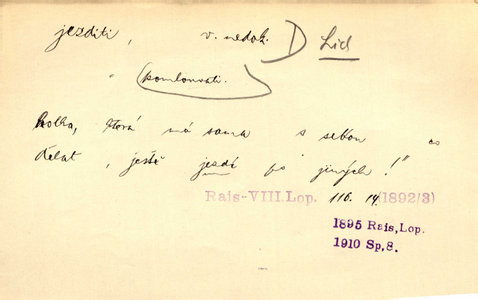 jezditi, v. nedok. D Lid
" (pomlouvati.)
holka, která má sama s sebou co
dělat, ještě jezdí po jiných!"
Rais-VIII.Lop. 116. 14. (1892/3)
1895 Rais, Lop.
1910 Sp,8.